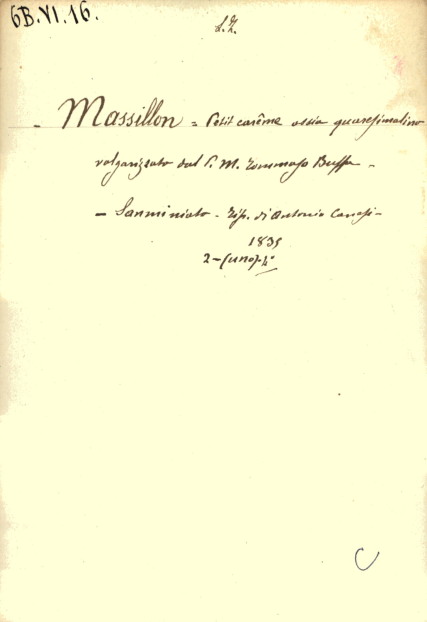 6B.VI.16.
S.Z.
- Massillon = Petit carême ossia quaresimalino
volgarizzato dal P. M. Tommaso Buffa -
- Sanminiato - Tip. di Antonio Canesi -
1835
2-(uno)-4°
C